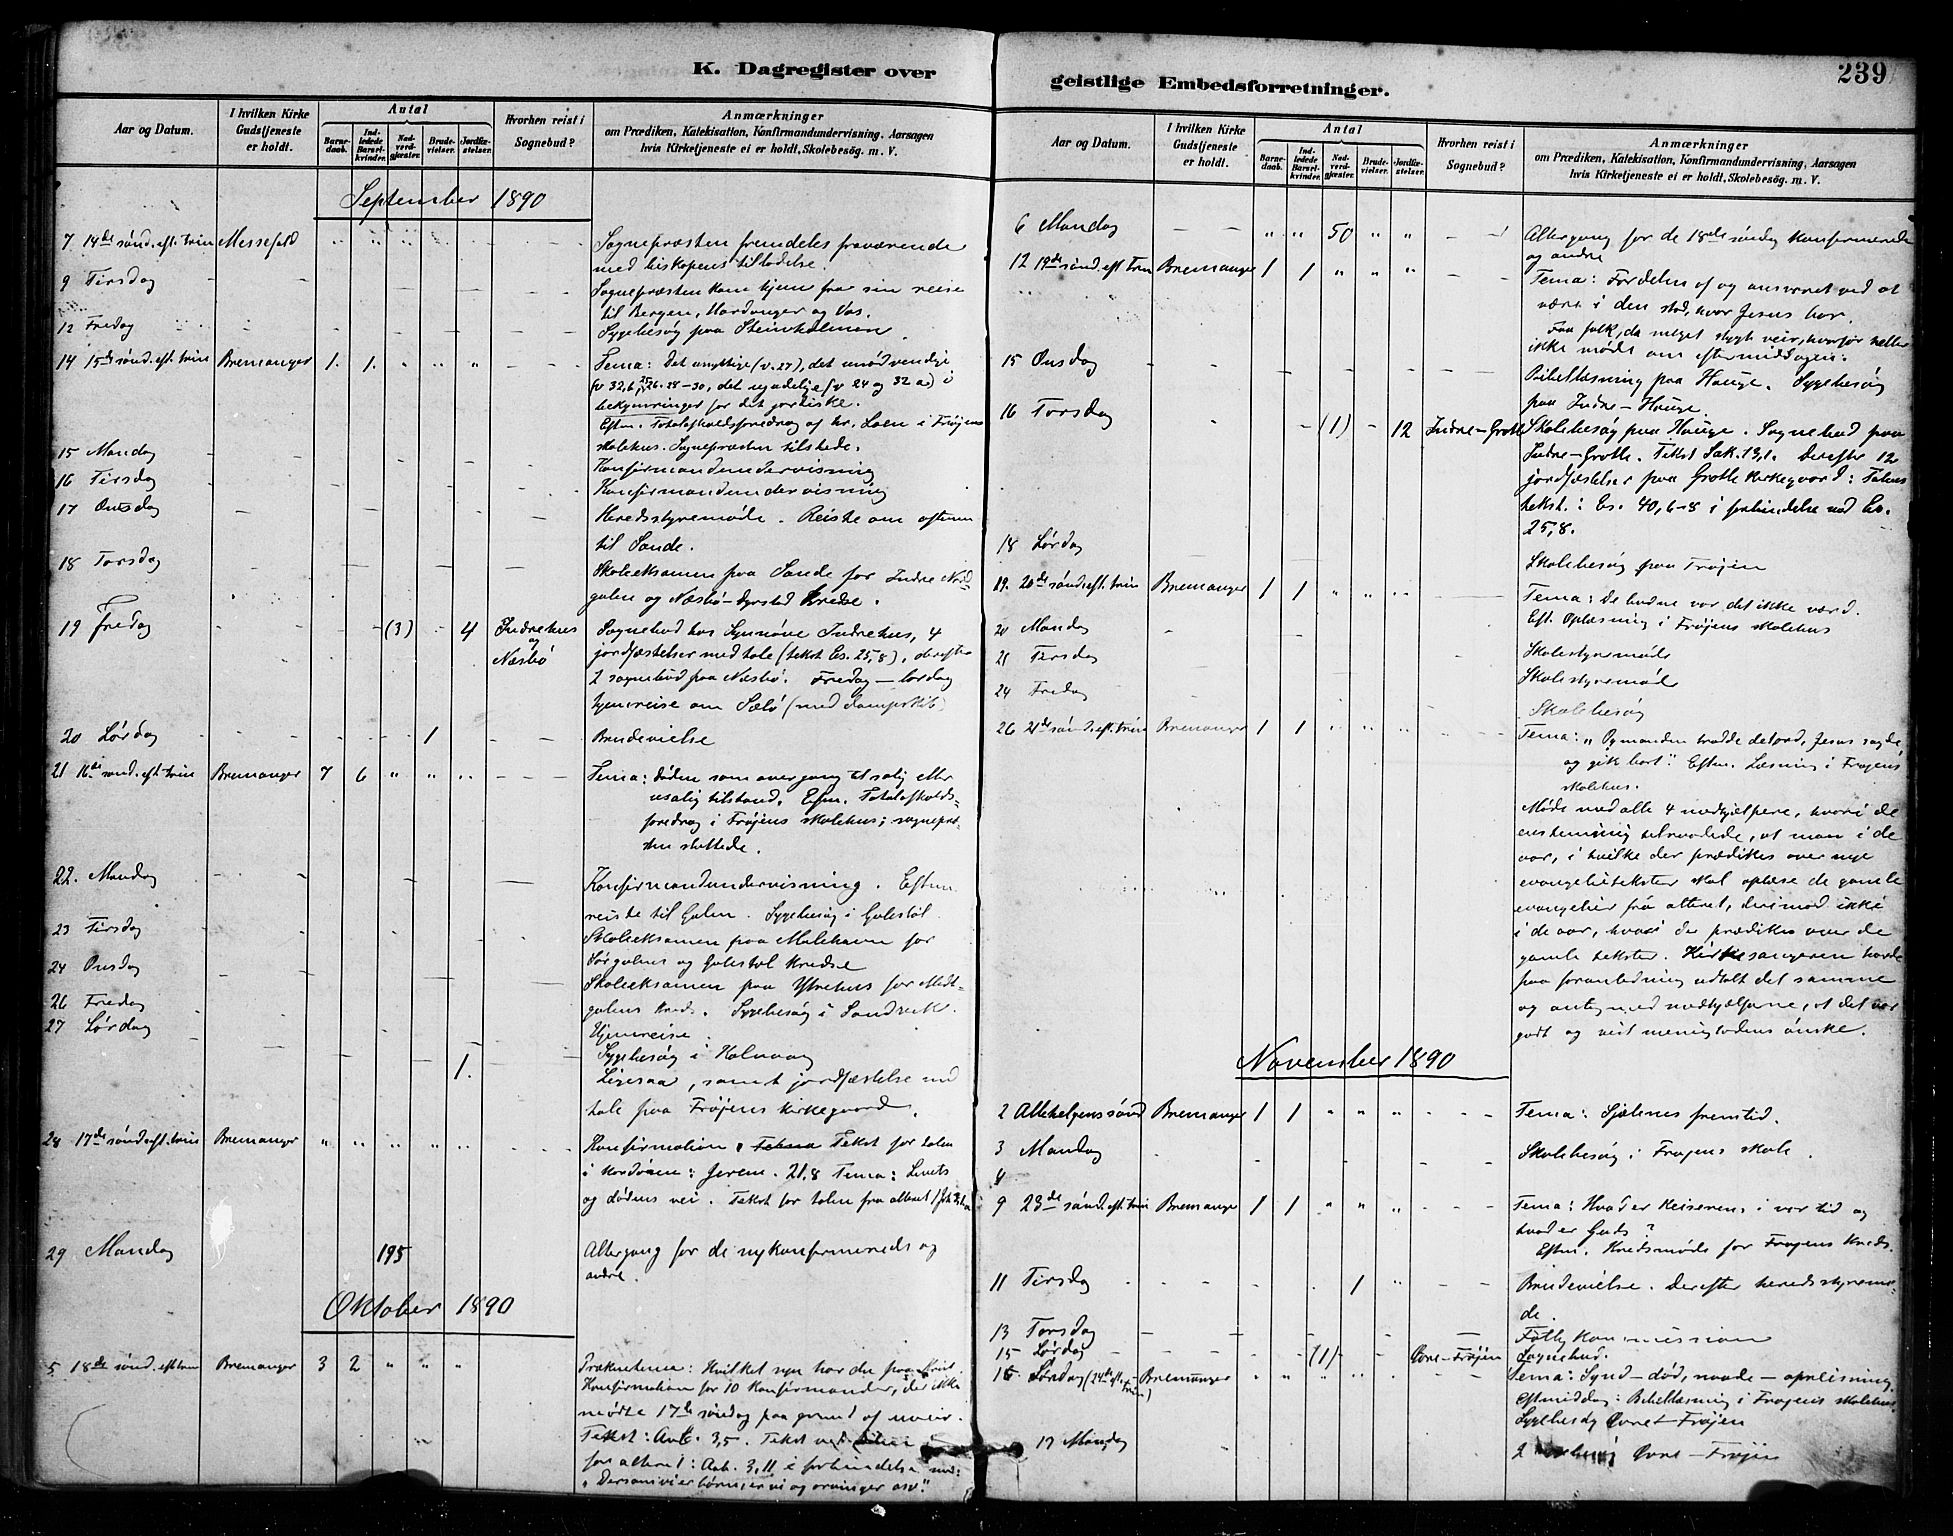 K. Dagregister over
Aar og Datum.
I hvilken Kirke Gudstjeneste er holdt.
Antal
Barnedaab.
Indledede Barselkvinder.
Nadverdgjæster.
Brudevielser.
Jordfæstelser.
Hvorhen reist i Sognebud?
Anmærkninger
om Prædiken, Katekisation, Konfirmandundervisning, Aarsagen
hvis Kirketjeneste ei er holdt, Skolebesøg. m. V.
September 1890
7 14de sønd. eft. trin Messefald Sognepræsten fremdeles fraværende
med biskopens tilladelse.
9 Tirsdag Sognepræsten kom hjem fra sin reise
til Bergen, Hardanger og Vos.
12 Fredag Sygebesøg paa Steinholmen
14 15de sønd. eft. trin Bremanger 1. 1. Tema: Det unyttige (v. 27), det unødvendige
(v 32, b, 25, 26. 28-30, det ugudelige (v 24 og 32 a) i
bekymringer for det jordiske.
Eftm. Totalafholdsforedrag af hr. Loen i Frøjens
skolehus. Sognepræsten tilstede.
15 Mandag Konfirmandundervisning
16 Tirsdag Konfirmandundervisning
17 Onsdag Heredsstyremøde. Reiste om aftenen
til Sande.
18 Torsdag Skoleeksamen paa Sande for Indre Nord-
gulen og Næsbø-Dyrstad kredse.
19 Fredag (3) 4 Indrehus og Næsbø Sognebud hos Synnøve Indrehus, 4
jordfæstelser med tale (tekst Es. 25,8), derefter
2 sognebud paa Næsbø. Fredag - lørdag
hjemreise om Kalvåg (med dampskib)
20 Lørdag 1 Brudevielse
21 16de sønd. eft. trin Bremanger 7 6 Tema: døden som overgang til salig eller
usalig tilstand. Eftm. Totalafholds-
foredrag i Frøjens skolehus; sognepræ-
sten sluttede.
22. Mandag Konfirmandundervisning. Eftm.
reiste til Gulen. Sygebesøg i Gulestøl.
23 Tirsdag Skoleeksamen paa Molehavn for
Sørgulens og Gulestøl kredse
24 Onsdag Skoleeksamen paa Ytrehus for Midt-
gulens kreds. Sygebesøg i Sandvik.
Hjemreise.
26 Fredag Sygebesøg i Kalvaag
27 Lørdag 1. Ligesaa, samt jordfæstelse med
tale paa Frøjens kirkegaard.
28 17de sønd. eft. trin Bremanger Konfirmation. Tekst for talen
i kordøren: Jerem. 21,8 Tema: Livets
og dødens vei. Tekst for talen fra alteret
29 Mandag 195 Altergang for de nykonfirmerede og
andre.
Oktober 1890
5 18de sønd. eft. trin Bremanger 3 2 Prækentema: Hvilket syn har du paa Krist
Konfirmation for 10 konfirmander, der ikke
mødte 17de søndag paa grund af uveir.
Tekst: Aab. 3,5. Tekst ved talen
for alteret: Aab. 3,11 i forbindelse med:
"Dersom vi er børn, er vi og arvinger osv."
geistlige Embedsforretninger.
239
Aar og Datum.
I hvilken Kirke Gudstjeneste er holdt.
Antal
Barnedaab.
Indledede Barselkvinder.
Nadverdgjæster.
Brudevielser.
Jordfæstelser.
Hvorhen reist i Sognebud?
Anmærkninger
om Prædiken, Katekisation, Konfirmandundervisning, Aarsagen
hvis Kirketjeneste ei er holdt, Skolebesøg. m. V.
6 Mandag 50 Altergang for de 18de søndag konfirmerede
og andre
12 19de sønd. eft. trin Bremanger 1 1 Tema: Fordelen af og ansvaret ved at
være i den stad, hvor Jesus bor.
Faa folk, da meget stygt veir, hvorfor heller
ikke møde om eftermiddagen.
15 Onsdag Bibellæsning paa Hauge. Sygebesøg
paa Indre-Hauge.
16 Torsdag (1) 12 Indre-Grotle Skolebesøg paa Hauge. Sognebud paa
Indre-Grotle. Tekst Sak. 13,1. Derefter 12
jordfæstelser paa Grotle kirkegaard: Talens
tekst: Es. 40, 6-8 i forbindelse med Es.
25,8.
18 Lørdag Skolebesøg paa Frøjen
19. 20de sønd. eft. trin Bremanger 1 1 Tema: De budne var det ikke værd.
Eft. Oplæsning i Frøjens skolehus
20 Mandag Skolestyremøde
21 Tirsdag Skolestyremøde
24 Fredag Skolebesøg
26 21de sønd. eft. trin Bremanger 1 1 Tema: "Og manden trodde det ord, Jesus sagde,
og gik bort." Eftm. Læsning i Frøjens
skolehus.
Møde med alle 4 medhjælpere, hvori de
enstemmig tilraadede, at man i de
aar, i hvilke der prædikes over nye
evangelietekster skal oplæse de gamle
evangelier fra alteret, derimod ikke
i de aar, hvori der prædikes over de
gamle tekster. Kirkesangeren havde
paa foranledning udtalt det samme
og antog med medhjælperne, at det var
godt og vist menighedens ønske.
November 1890
2 Allehelgenssønd Bremanger 1 1 Tema: Sjælenes fremtid.
3 Mandag Skolebesøg i Frøjens skole.
4
9 23de sønd. eft. trin Bremanger 1 1 Tema: Hvad er Keiserens i vor tid og
hvad er Guds?
Eftm. Kredsmøde for Frøjens kreds.
11 Tirsdag 1 Brudevielse. Derefter heredsstyremø-
de.
13 Torsdag Fattigkommission
15 Lørdag (1) Øvre-Frøjen Sognebud.
16 Lørdag (24de eft. trin) Bremanger Tema: Synd - død, naade - opreisning.
Eftmiddag: Bibellæsning i Frøjens skolehus
Sygebesøg Øvre-Frøjen
17 Mandag 2 Øvre-Frøjen